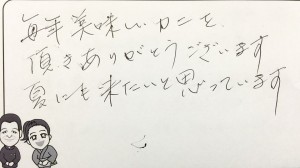 毎年美味しいカニを
頂きありがとうございます
夏にも来たいと思っています